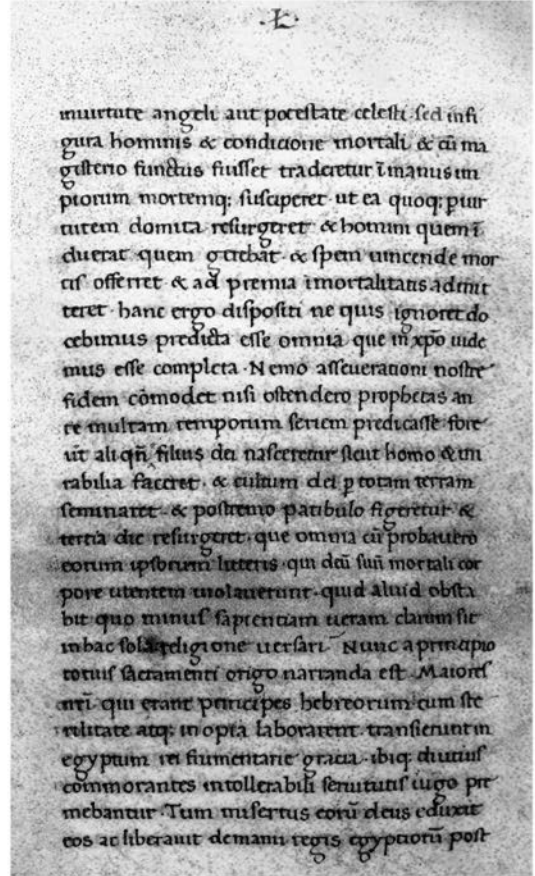 ·L·
inuirtute angeli aut potestate celesti. sed infi
gura hominis & condicione mortali. & cū ma
gisterio functus fuisset traderetur īmanus im
piorum mortemq; susciperet. ut ea quoq; puir
tutem domita resurgeret. & homini quem ī
duerat quem gerebat. & spem uincende mor
tis offerret. & ad premia īmortalitatis admit
teret. hanc ergo dispositi ne quis ignoret do
cebimus predicta esse omnia que in xp̄o uide
mus esse completa. Nemo asseuerationi nostre
fidem cōmodet nisi ostendero prophetas an
te multam temporum seriem predicasse. fore
ut́ aliqn̄ filius dei nasceretur sicut homo & mi
rabilia faceret. & cultum dei p totam terram
seminaret. & postremo patibulo figeretur &
tertia die resurgeret. que omnia cū probauero
eorum ipsorum litteris. qui deū suū mortali cor
pore utentem uiolauerunt. quid aliud obsta
bit quo minus sapientiam ueram clarum sit
inhac sola religione uersari. Nunc a principio
totius sacramenti origo narranda est. Maiores
nr̄i qui erant principes hebreorum cum ste
rilitate atq; inopia laborarent. transierunt in
egyptum rei frumentarie gracia. ibiq; diutius
commorantes intollerabili seruitutis iugo pre
mebantur. Tum misertus eorū deus eduxit
eos ac liberauit demanu regis egyptiorū post